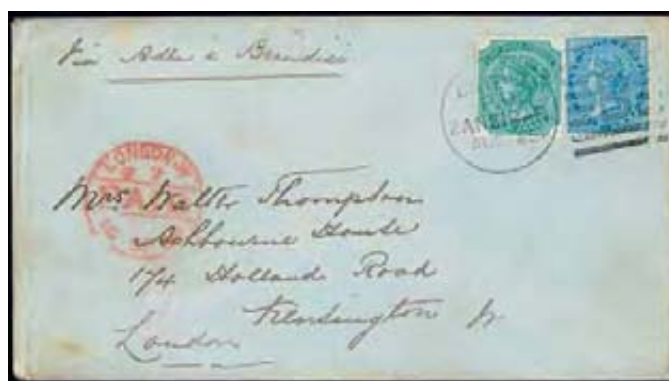 Via Aden & Brindisi
ZANZIBAR
LONDON.W
Mrs. Walter Thompson
Ashbourne House
174 Holland Road
Kensington
London